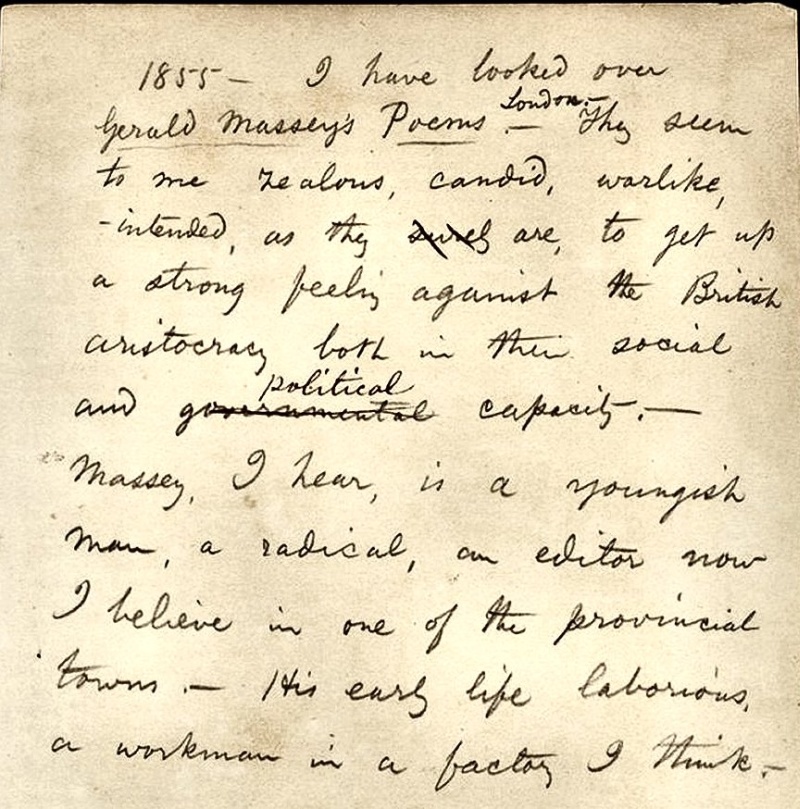 1855 — I have looked over
London. —
Gerald Massey's Poems. — They seem
to me zealous, candid, warlike,
-intended, as they surely are, to get up
a strong feeling against the British
aristocracy both in their social
political
and governmental capacity. —
Massey, I hear, is a youngish
man, a radical, an editor now
I believe in one of the provincial
towns. — His early life laborious,
a workman in a factory I think. —